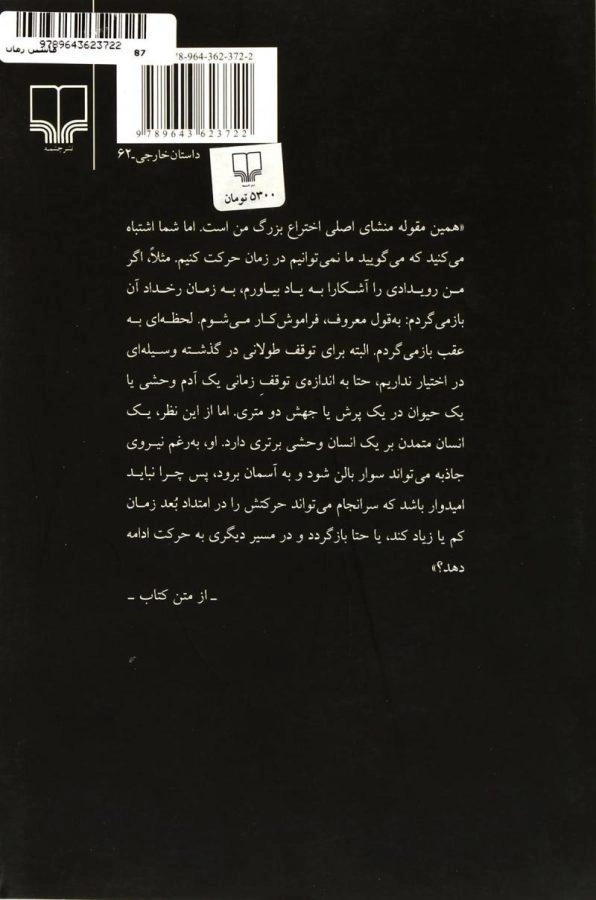 9789643623722
87
78-964-362-372-2
9 789643 623722
نشر چشمه
داستان خارجی ـ ۶۲
۵۳۰۰ تومان
«همین مقوله منشای اصلی اختراع بزرگ من است. اما شما اشتباه
می‌کنید که می‌گویید ما نمی‌توانیم در زمان حرکت کنیم. مثلاً، اگر
من رویدادی را آشکارا به یاد بیاورم، به زمان رخداد آن
بازمی‌گردم: به‌قول معروف، فراموش‌کار می‌شوم. لحظه‌ای به
عقب بازمی‌گردم. البته برای توقف طولانی در گذشته وسیله‌ای
در اختیار نداریم، حتا به اندازه‌ی توقفِ زمانی یک آدم وحشی یا
یک حیوان در یک پرش یا جهش دو متری. اما از این نظر، یک
انسان متمدن بر یک انسان وحشی برتری دارد. او، به‌رغم نیروی
جاذبه می‌تواند سوار بالن شود و به آسمان برود، پس چرا نباید
امیدوار باشد که سرانجام می‌تواند حرکتش را در امتداد بُعد زمان
کم یا زیاد کند، یا حتا بازگردد و در مسیر دیگری به حرکت ادامه
دهد؟»
ـ از متن کتاب ـ